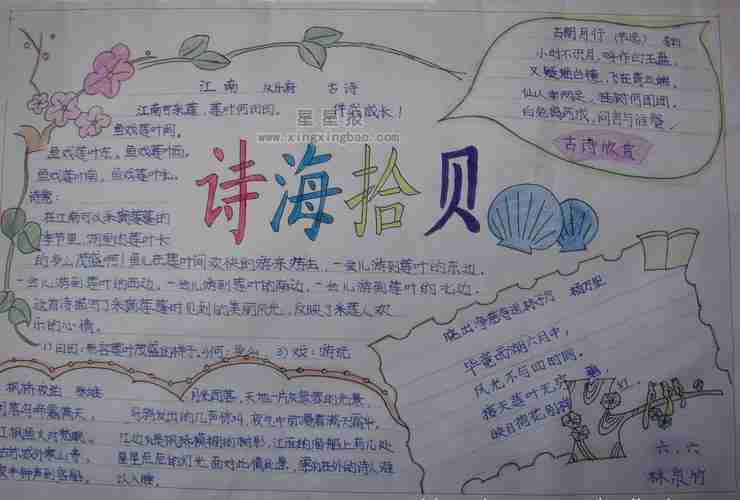 江南 汉乐府 古诗
江南可采莲，莲叶何田田。
鱼戏莲叶间。
鱼戏莲叶东，鱼戏莲叶西，
鱼戏莲叶南，鱼戏莲叶北。
伴我成长！
星星报
www.xingxingbao.com
诗海拾贝
诗意：
在江南可以采摘莲蓬的
季节里，湖里的莲叶长
的多么茂盛啊！鱼儿在莲叶间欢快的游来游去，一会儿游到莲叶的东边，
一会儿游到莲叶的西边，一会儿游到莲叶的南边，一会儿游到莲叶的北边。
这首诗描写了采摘莲莲叶见到的美丽风光，反映了采莲人欢
乐的心情。
1) 田田：形容莲叶茂盛的样子。2)何：多么 3) 戏：游玩
古朗月行（节选）
小时不识月，呼作白玉盘。
又疑瑶台镜，飞在青云端。
仙人垂两足，桂树何团团。
白兔捣药成，问言与谁餐。
古诗欣赏
晓出净慈寺送林子方 杨万里
毕竟西湖六月中，
风光不与四时同。
接天莲叶无穷
映日荷花别样
红。
枫桥夜泊 张继
落乌啼霜满天，
江枫渔火对愁眠。
苏城外寒山寺，
夜半钟声到客船。
月光西落，天地一片灰蒙蒙的光景，
乌鸦发出的几声惊叫，夜空中
星星点点的灯光。面对此情此景，
以入睡。
六、六